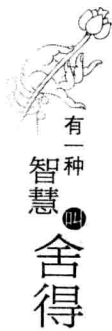 有一种
智慧叫
舍得